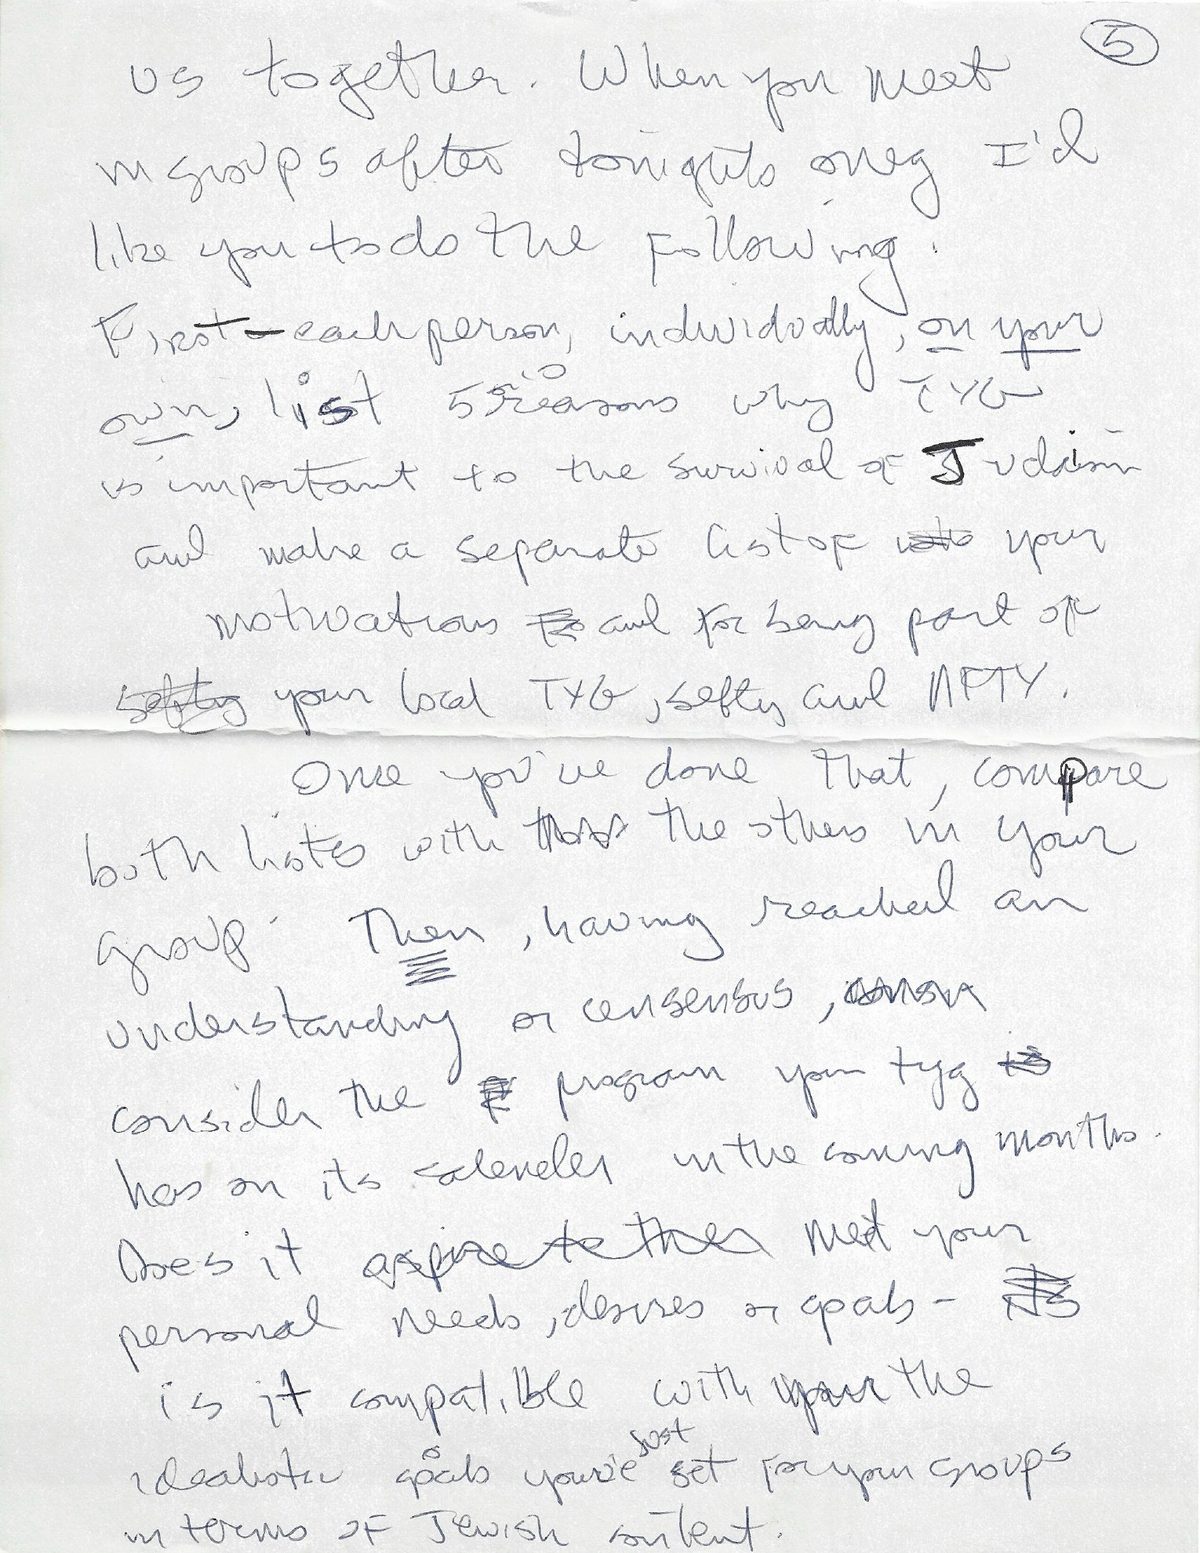 5
us together. When you meet
in groups after tonights oneg I'd
like you to do the following.
First - each person, individually, on your
own, list 5 reasons why TYG
is important to the survival of Judaism
and make a separate list of your
motivations and for being part of
your local TYG, sefty and NFTY.
Once you've done that, compare
both lists with the others in your
group. Then, having reached an
understanding or consensus,
consider the program your tyg
has on its calender in the coming months.
Does it aspire to then meet your
personal needs, desires or goals -
is it compatible with the
idealistic goals you've just set for your groups
in terms of Jewish content.